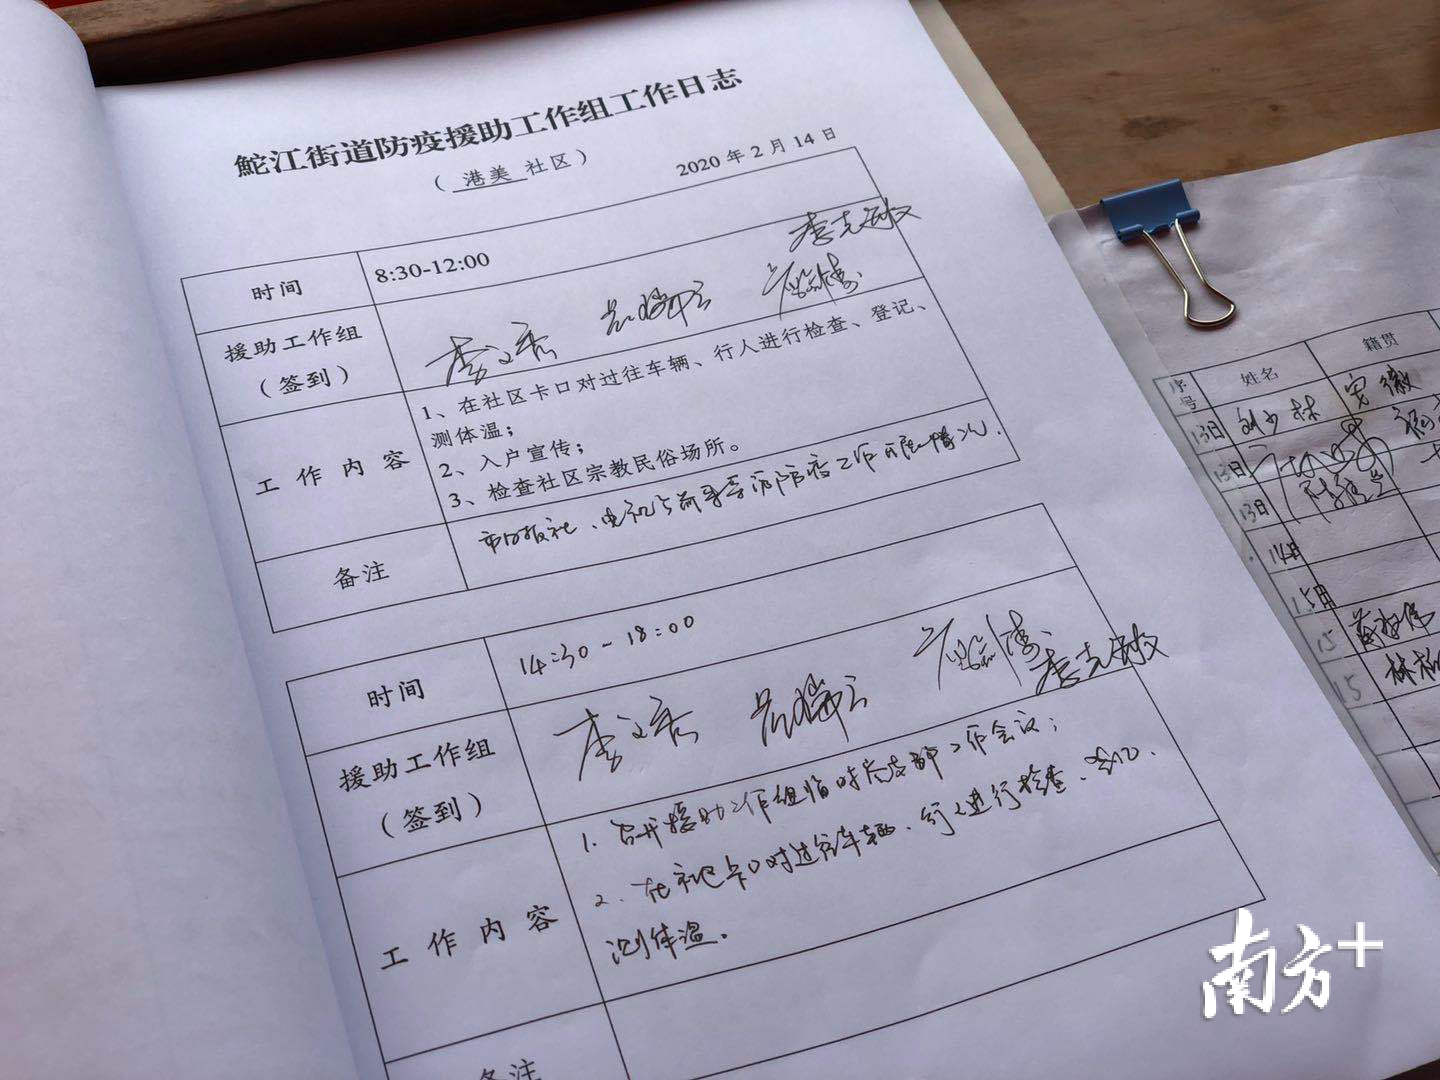 鮀江街道防疫援助工作组工作日志
（ 港美 社区）
2020 年 2 月 14 日
时间
8:30-12:00
援助工作组
（签到）
李克敏
工 作 内 容
1、在社区卡口对过往车辆、行人进行检查、登记、
测体温；
2、入户宣传；
3、检查社区宗教民俗场所。
备注
市日报社、电视台前来采访防疫工作开展情况.
时间
14:30-18:00
援助工作组
（签到）
李克敏
工 作 内 容
1. 召开援助工作组临时党支部工作会议；
2. 在社区卡口对过往车辆、行人进行检查、登记、
测体温。
备注
序号
姓名
籍贯
13日
刘少林
安徽
13日
13日
14日
15日
15
15
南方+